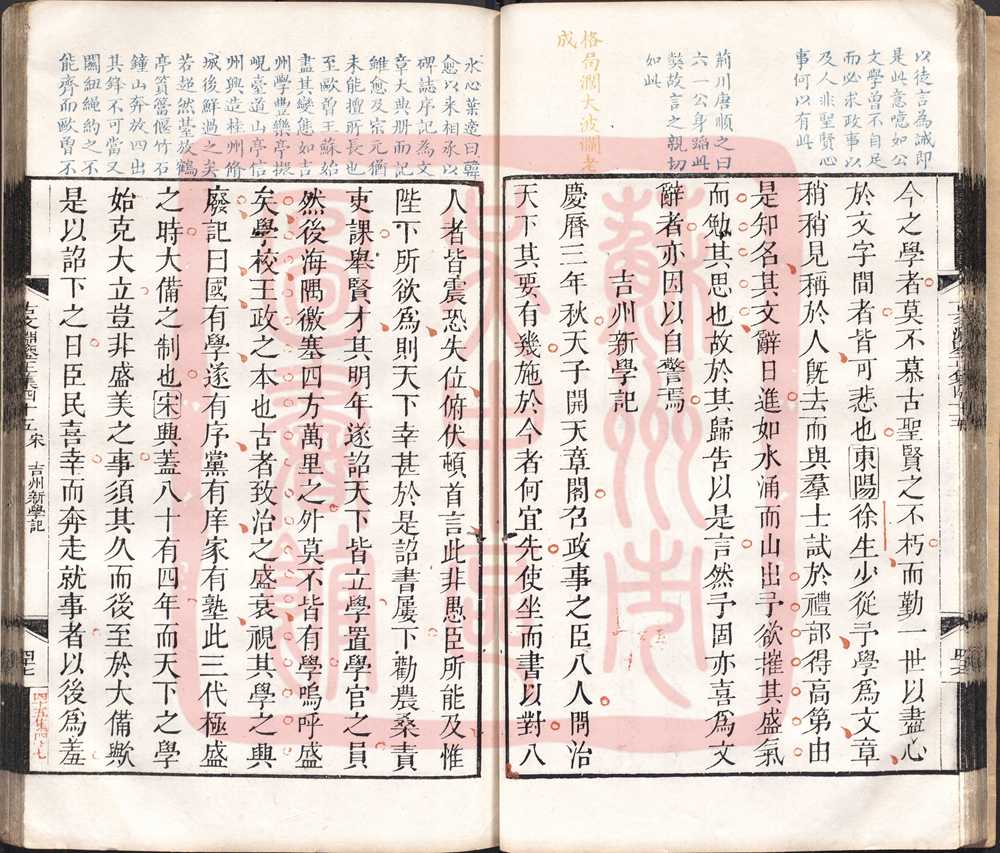 以徒言為誡即
是此意噫如公
文學曾不自足
而必求政事以
及人非聖賢心
事何以有此
荊川唐順之曰
六一公身蹈此
獘故言之親切
如此
格局濶大波瀾老
成
今之學者莫不慕古聖賢之不朽而勤一世以盡心
於文字間者皆可悲也東陽徐生少從予學為文章
稍稍見稱於人旣去而與羣士試於禮部得高第由
是知名其文辭日進如水涌而山出予欲摧其盛氣
而勉其思也故於其歸告以是言然予固亦喜為文
辭者亦因以自警焉
吉州新學記
慶曆三年秋天子開天章閣召政事之臣八人問治
天下其要有幾施於今者何宜先使坐而書以對八
水心葉適曰韓
愈以來相承以
碑誌序記為文
章大典册而記
雖愈及宗元猶
未能擅所長也
至歐曾王蘇始
盡其變態如吉
州學豐樂亭擬
峴臺道山亭信
州興造桂州修
城後鮮過之矣
若超然臺放鶴
亭篔簹偃竹石
鐘山奔放四出
其鋒不可當又
關紐繩約之不
能齊而歐曾不
人者皆震恐失位俯伏頓首言此非愚臣所能及惟
陛下所欲為則天下幸甚於是詔書屢下勸農桑責
吏課舉賢才其明年遂詔天下皆立學置學官之員
然後海隅徼塞四方萬里之外莫不皆有學嗚呼盛
矣學校王政之本也古者致治之盛衰視其學之興
廢記曰國有學遂有序黨有庠家有塾此三代極盛
之時大備之制也宋興蓋八十有四年而天下之學
始克大立豈非盛美之事須其久而後至於大備歟
是以詔下之日臣民喜幸而奔走就事者以後為羞
宋 吉州新學記
蘇州市
圖書館